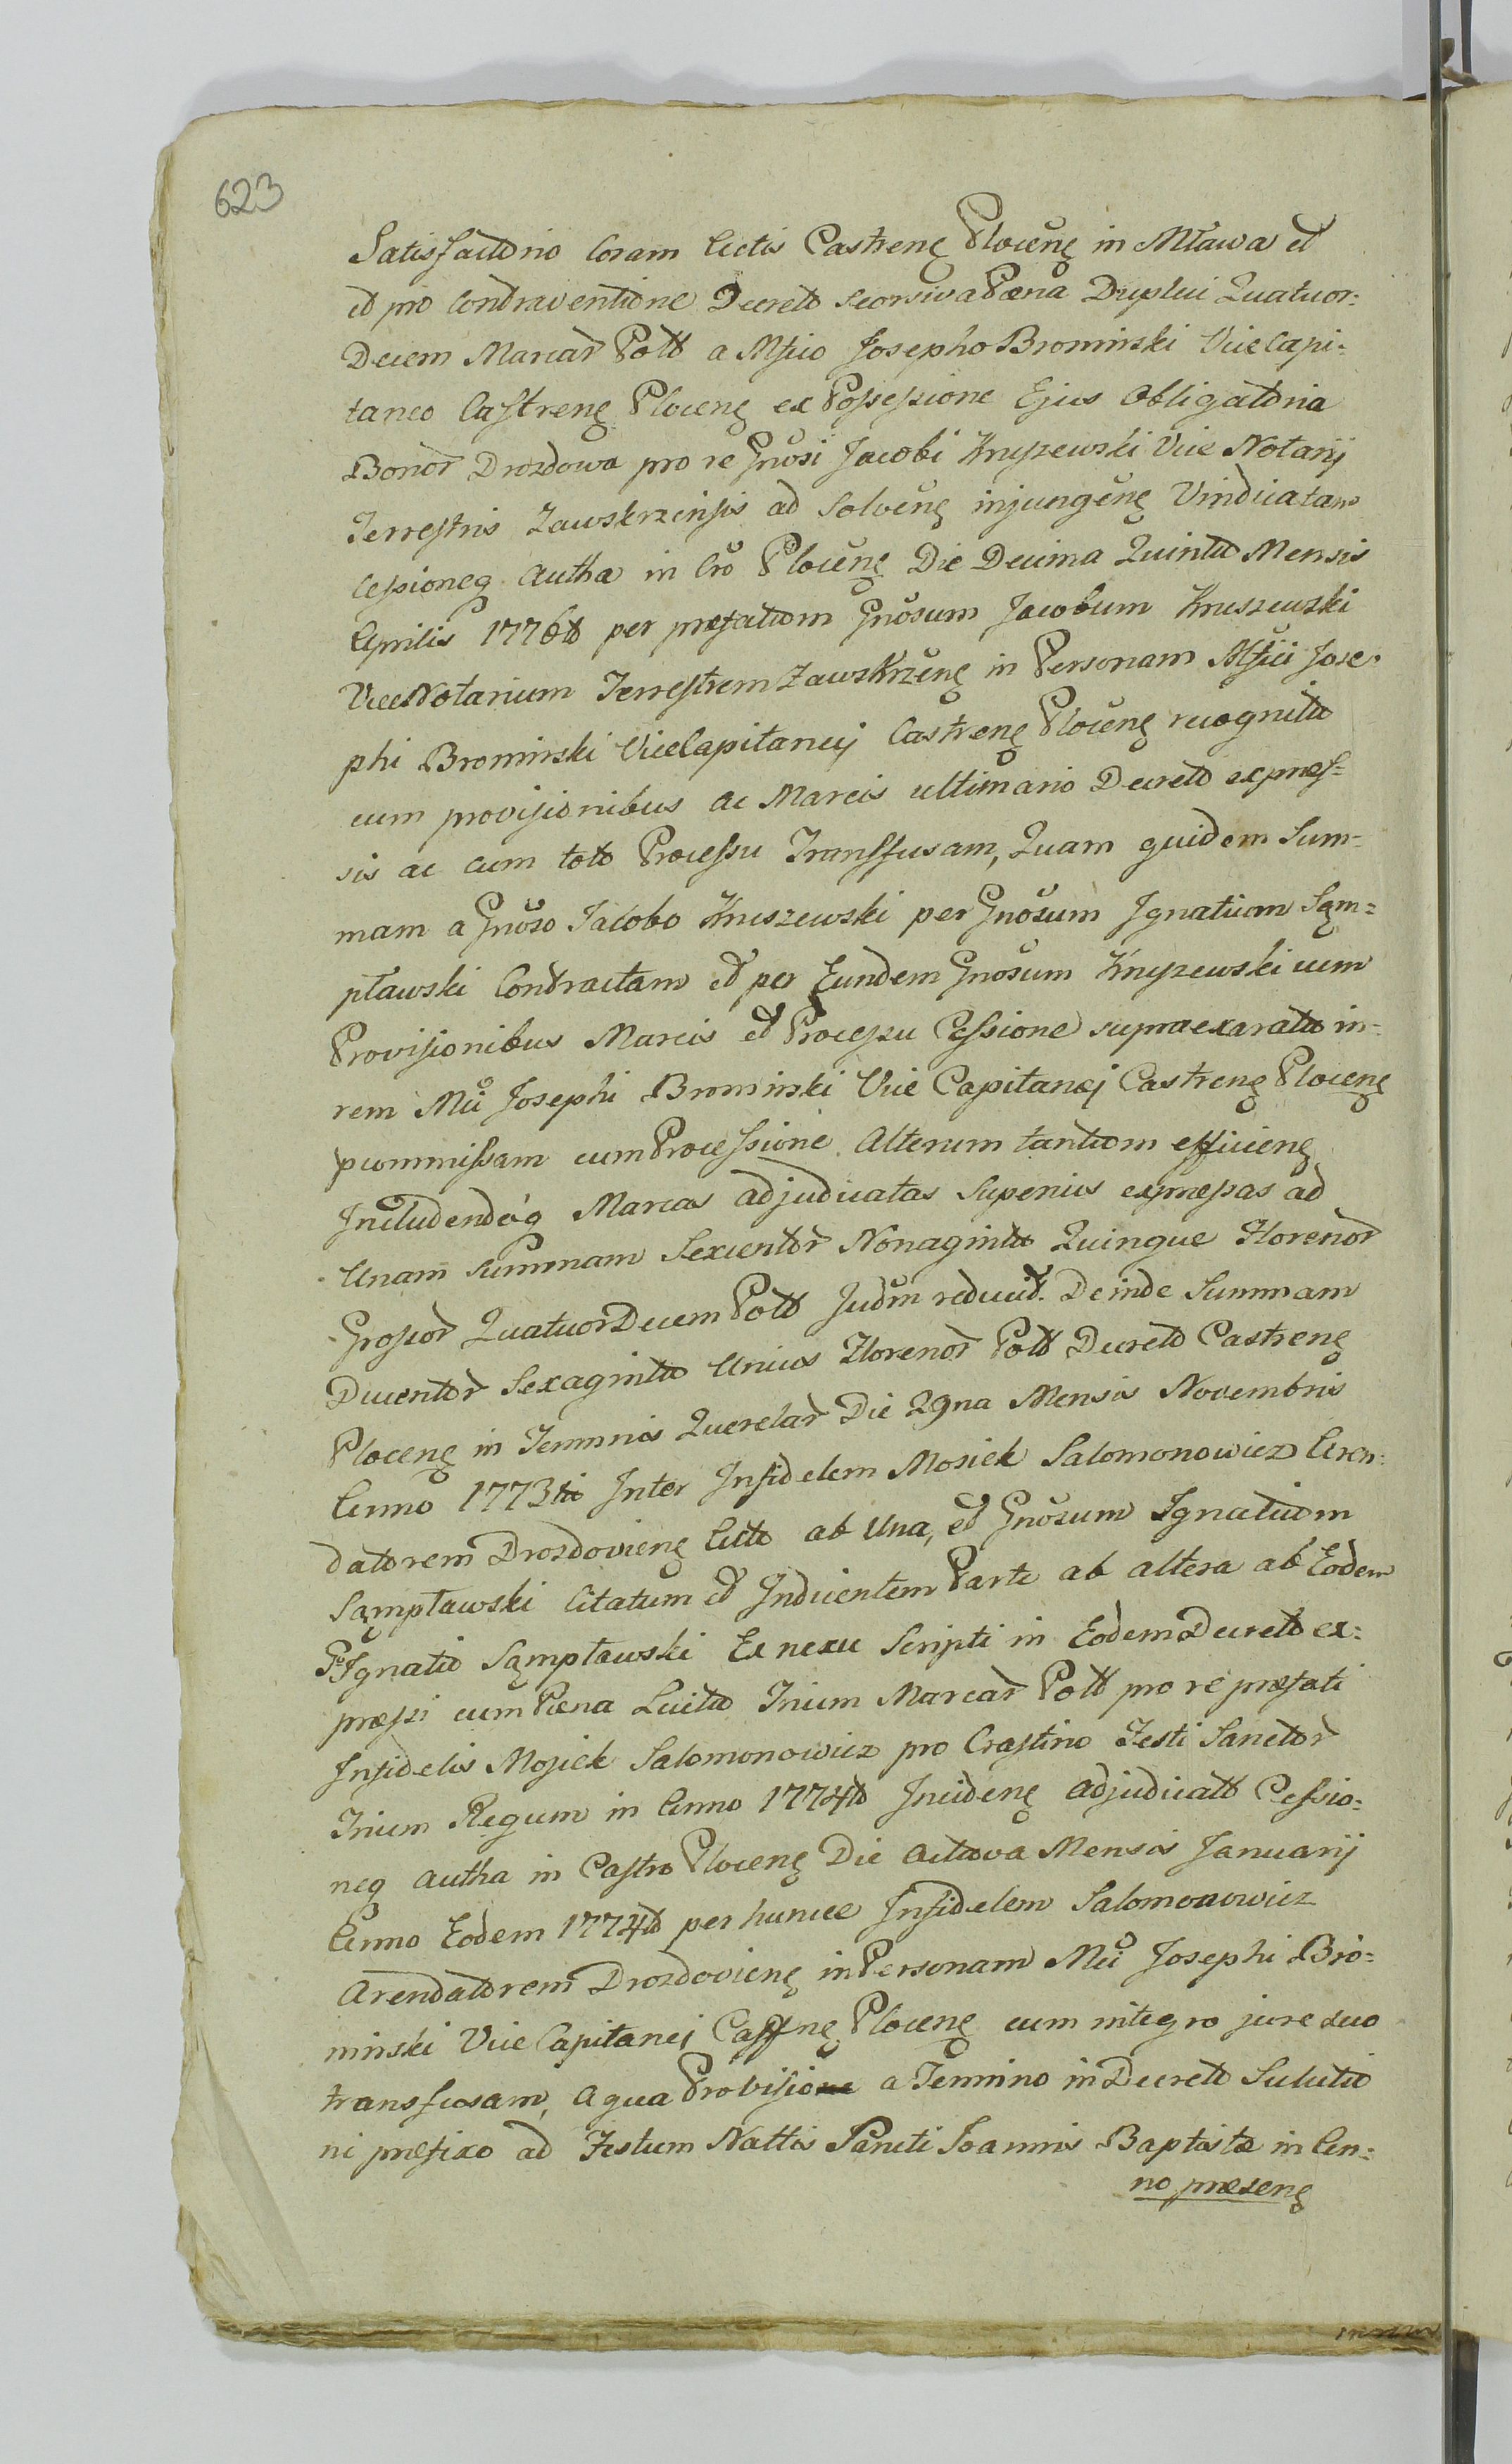 623
Satisfactorio Coram Actis Castrenę Plocenę in Mława et
et pro Contraventione Decreto seorsiva Pæna Duplici Quatuor=
Decem Marcar Poll a Mfico Josepho Brominski ViceCapi=
taneo Castrenę Plocenę ex Possessione Ejus Obligatoria
Bonor Drozdowa pro re Gnosi Jacobi Kruszewski Vice Notarij
Terrestris Zawskrzensis ad Solvenę injungenę Vindicatam
Cessioneq autha in Cro Plocenę Die Decima Quinta Mensis
Aprilis 1776to per præfatum Gnosum Jacobum Kruszewski
ViceNotarium Terrestrem Zawskrzenę in Personam Mfici Jose=
phi Brominski ViceCapitaneij Castrenę Plocenę recognita
cum provisionibus ac Marcis ultimario Decreto expres=
sis ac cum toto Processu Transfusam, Quam quidem Sum=
mam a Gnoso Jacobo Kruszewski per Gnosum Ignatium Sąm=
pławski Contractam et per Eundem Gnosum Kruszewski cum
Provisionibus Marcis et Processu Cessione supraexarata in
rem Mci Josephi Brominski Vice Capitanej Castrenę Plocenę
pcommissam cum Processione Alterum tantum efficienę
Includendoq Marcas adjudicatas Superius expressas ad
Unam Summam Sexcentor Nonaginta Quinque Florenor
Grossor QuatuorDecem Poll Judm reducit. Deinde Summam
Ducentor Sexaginta Unius Florenor Poll Decreto Castrenę
Plocenę in Terminis Querelar Die 29na Mensis Novembris
Anno 1773tio Inter Infidelem Mosiek Salomonowicz Aren=
datorem Drozdovienę Acto ab Una, et Gnosum Ignatium
Sąmpławski Citatum et Inducentem Parte ab altera ab Eodem
Ignatio Sąmpławski Ex nexu Scripti in Eodem Decreto ex=
pressi cum Pæna Luita Trium Marcar Poll pro re præfati
Infidelis Mosiek Salomonowicz pro Crastino Festi Sanctor
Trium Regum in Anno 1774to Incidenę adjudicatt Cessio=
neq autha in Castro Plocenę Die Octava Mensis Januarij
Anno Eodem 1774to per huncce Infidelem Salomonowicz
Arendatorem Drozdovienę in Personam Mci Josephi Bro=
minski Vice Capitanei Castrenę Plocenę cum integro jure suo
transfusam, a qua Provisio a Termino in Decreto Solutio
ni præfixo ad Festum Nattis Sancti Joannis Baptistæ in An=
no præsenę